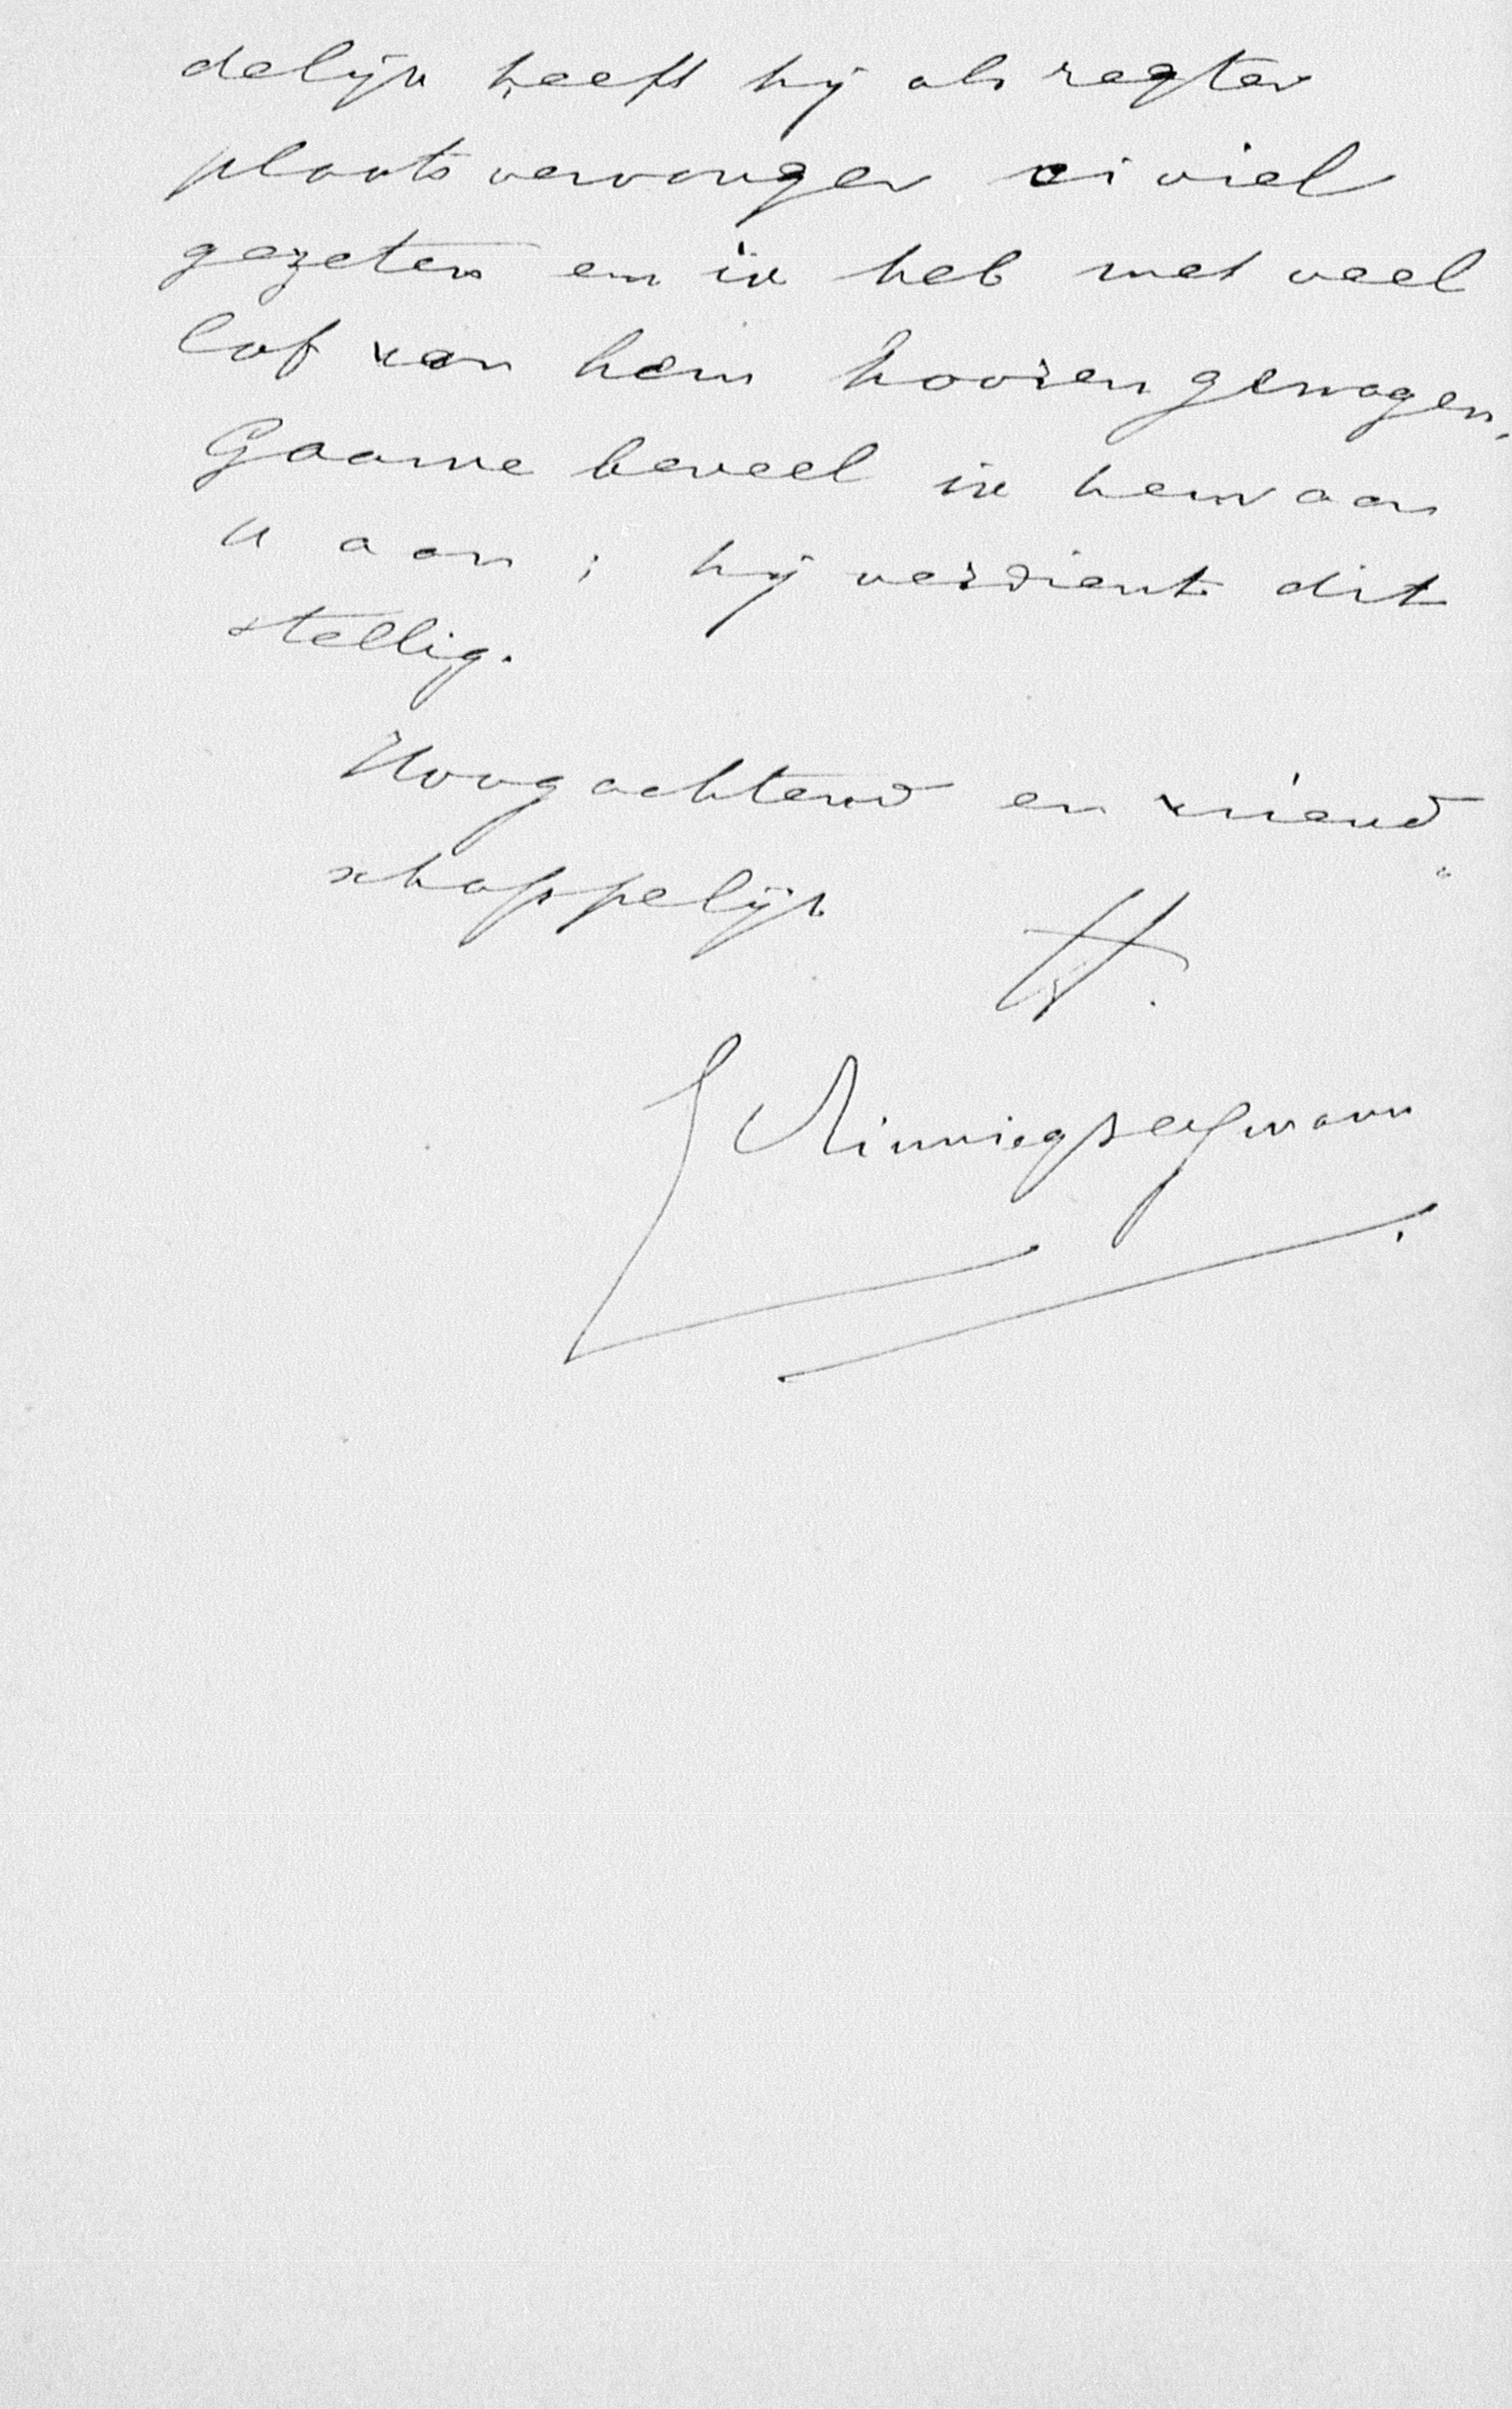 delijk heeft hij als regter
plaatsvervanger civiel
gezeten en ik heb met veel
lof van hem hooren gewagen.
Gaarne beveel ik hem aan
u aan; hij verdient dit
stellig.
Hoogachtend en vriend„
schappelijk
tt.